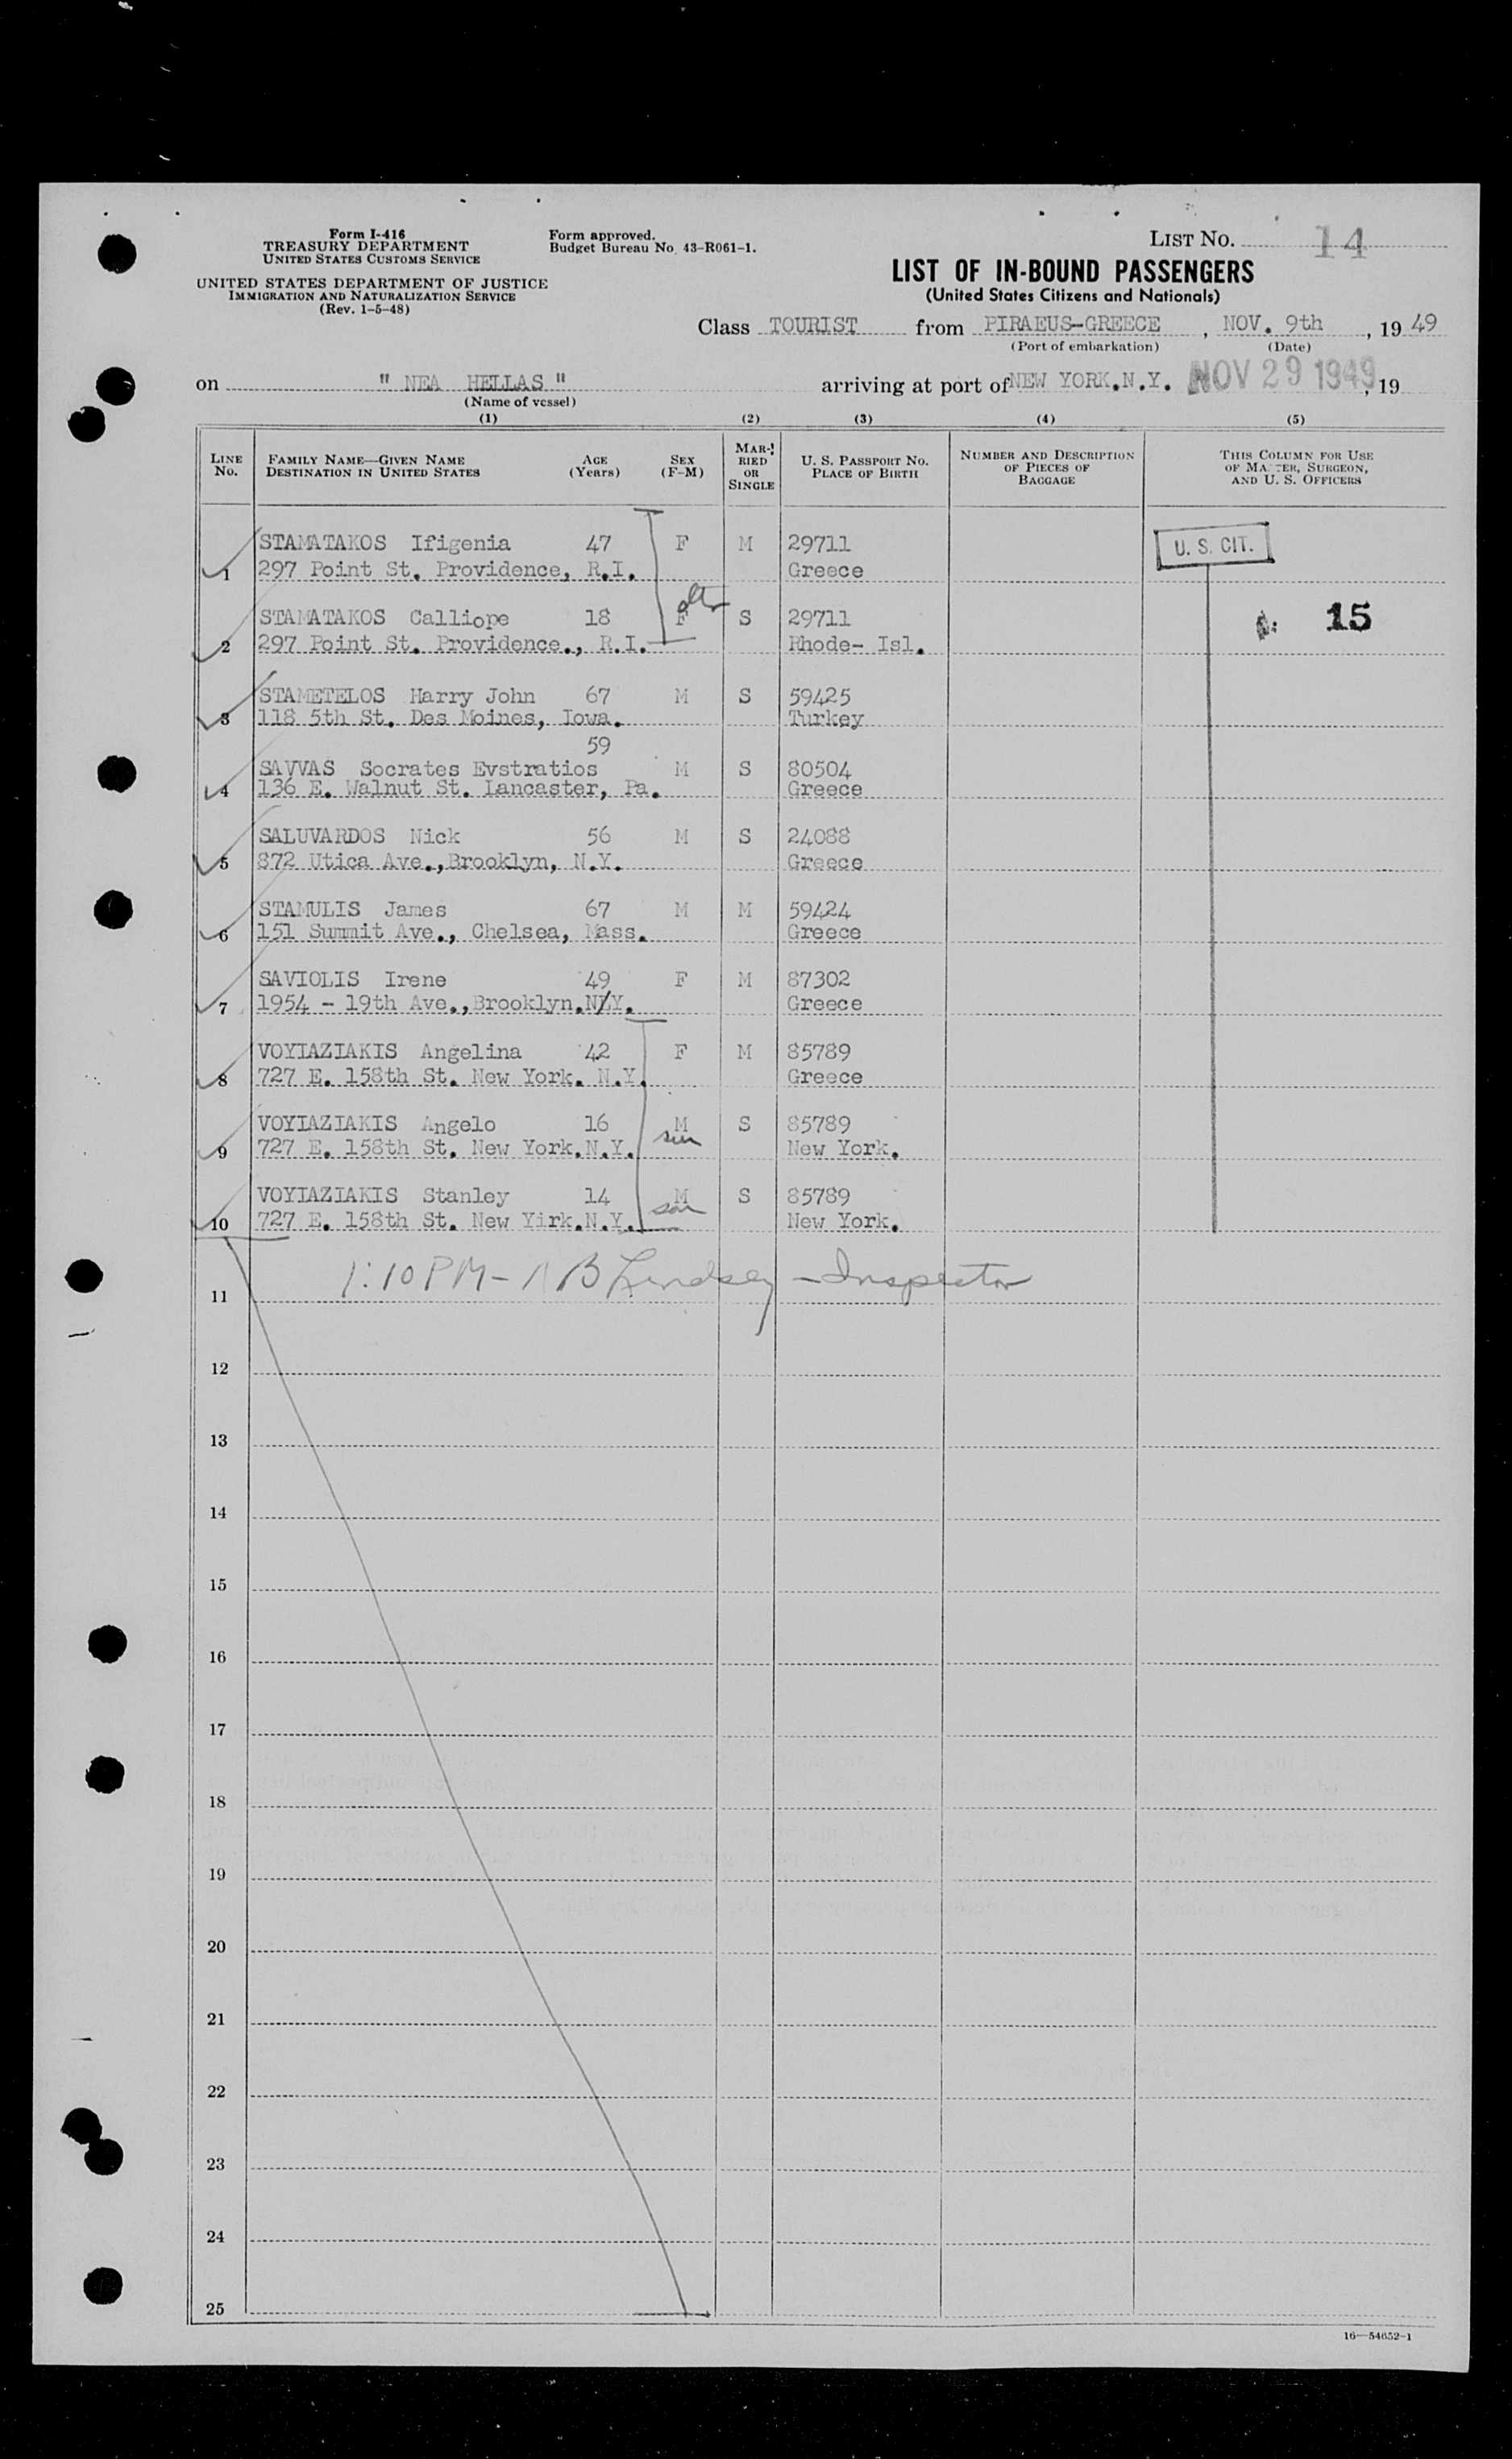 Form I-416
TREASURY DEPARTMENT
UNITED STATES CUSTOMS SERVICE
UNITED STATES DEPARTMENT OF JUSTICE
IMMIGRATION AND NATURALIZATION SERVICE
(Rev. 1-5-48)
Form approved.
Budget Bureau No. 43-R061-1.
LIST NO. 14
LIST OF IN-BOUND PASSENGERS
(United States Citizens and Nationals)
Class TOURIST from PIRAEUS-GREECE, NOV. 9th, 19 49
(Port of embarkation) (Date)
on " NEA HELLAS " arriving at port of NEW YORK.N.Y. NOV 29 1949, 19
(Name of vessel)
(1) (2) (3) (4) (5)
LINE No. FAMILY NAME—GIVEN NAME DESTINATION IN UNITED STATES AGE (Years) SEX (F-M) MARRIED OR SINGLE U. S. PASSPORT NO. PLACE OF BIRTH NUMBER AND DESCRIPTION OF PIECES OF BAGGAGE THIS COLUMN FOR USE OF MASTER, SURGEON, AND U. S. OFFICERS
STAMATAKOS Ifigenia 47 F M 29711 U. S. CIT.
1 297 Point St. Providence, R.I. Greece
STAMATAKOS Calliope 18 F S 29711 15
2 297 Point St. Providence., R.I. Rhode- Isl.
STAMETELOS Harry John 67 M S 59425
3 118 5th St. Des Moines, Iowa. Turkey
59
SAVVAS Socrates Evstratios M S 80504
4 136 E. Walnut St. Lancaster, Pa. Greece
SALUVARDOS Nick 56 M S 24088
5 872 Utica Ave.,Brooklyn, N.Y. Greece
STAMULIS James 67 M M 59424
6 151 Summit Ave., Chelsea, Mass. Greece
SAVIOLIS Irene 49 F M 87302
7 1954 - 19th Ave.,Brooklyn.N/Y. Greece
VOYIAZIAKIS Angelina 42 F M 85789
8 727 E. 158th St. New York. N.Y. Greece
VOYIAZIAKIS Angelo 16 M S 85789
son
9 727 E. 158th St. New York.N.Y. New York.
VOYIAZIAKIS Stanley 14 M S 85789
son
10 727 E. 158th St. New Yirk.N.Y. New York.
1:10 PM - B Lindsey - Inspector
11
12
13
14
15
16
17
18
19
20
21
22
23
24
25
16—54652-1